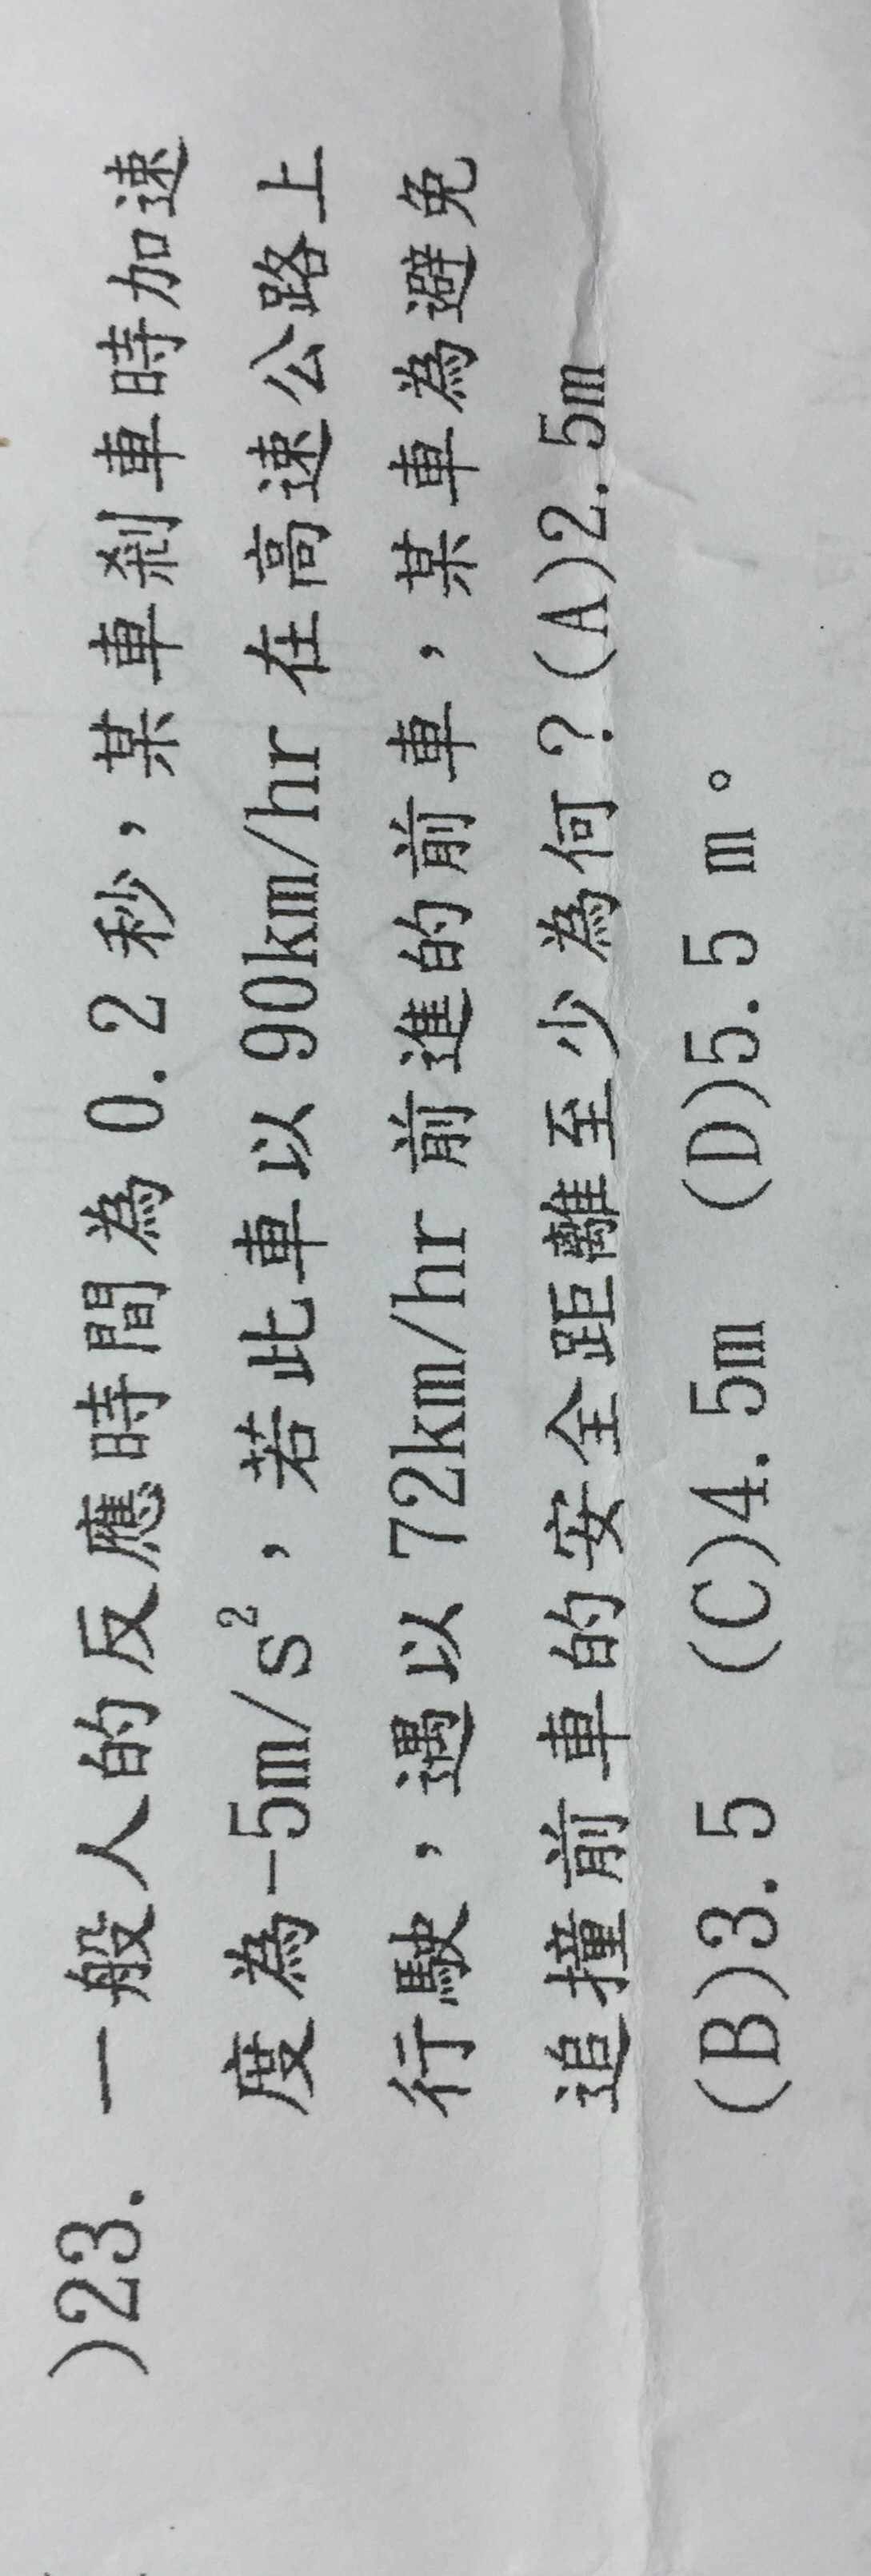 )23. 一般人的反應時間為 0.2 秒，某車剎車時加速
度為-5m/s²，若此車以 90km/hr 在高速公路上
行駛，遇以 72km/hr 前進的前車，某車為避免
追撞前車的安全距離至少為何？(A)2.5m
(B)3.5 (C)4.5m (D)5.5 m。